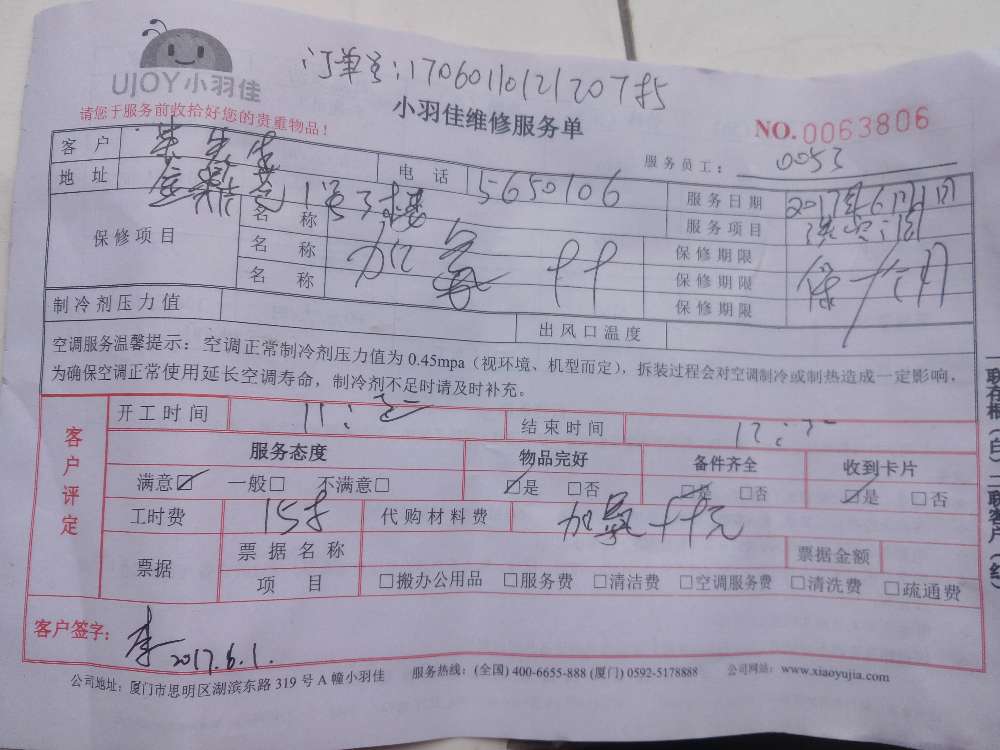 UJOY小羽佳
订单号:170601101212075
请您于服务前收拾好您的贵重物品!
小羽佳维修服务单
NO.0063806
服务员工: 0053
客户 先生
电话 5650106
服务日期 2017年6月1日
地址
服务项目
保修项目
名称
保修期限
名称 加氟
保修期限 保一个月
名称
保修期限
制冷剂压力值
出风口温度
空调服务温馨提示:空调正常制冷剂压力值为 0.45mpa(视环境、机型而定),拆装过程会对空调制冷或制热造成一定影响,
为确保空调正常使用延长空调寿命,制冷剂不足时请及时补充。
客户评定
开工时间 11:
结束时间 12:
服务态度 物品完好 备件齐全 收到卡片
满意☑ 一般□ 不满意□ ☑是 □否 ☑是 □否 ☑是 □否
工时费
代购材料费 加氟
票据
票据名称
票据金额
项目 □搬办公用品 □服务费 □清洁费 □空调服务费 □清洗费 □疏通费
客户签字: 李 2017.6.1.
公司地址:厦门市思明区湖滨东路 319 号 A 幢小羽佳 服务热线:(全国) 400-6655-888 (厦门) 0592-5178888 公司网站:www.xiaoyujia.com
一联存根(白)二联客户(红)